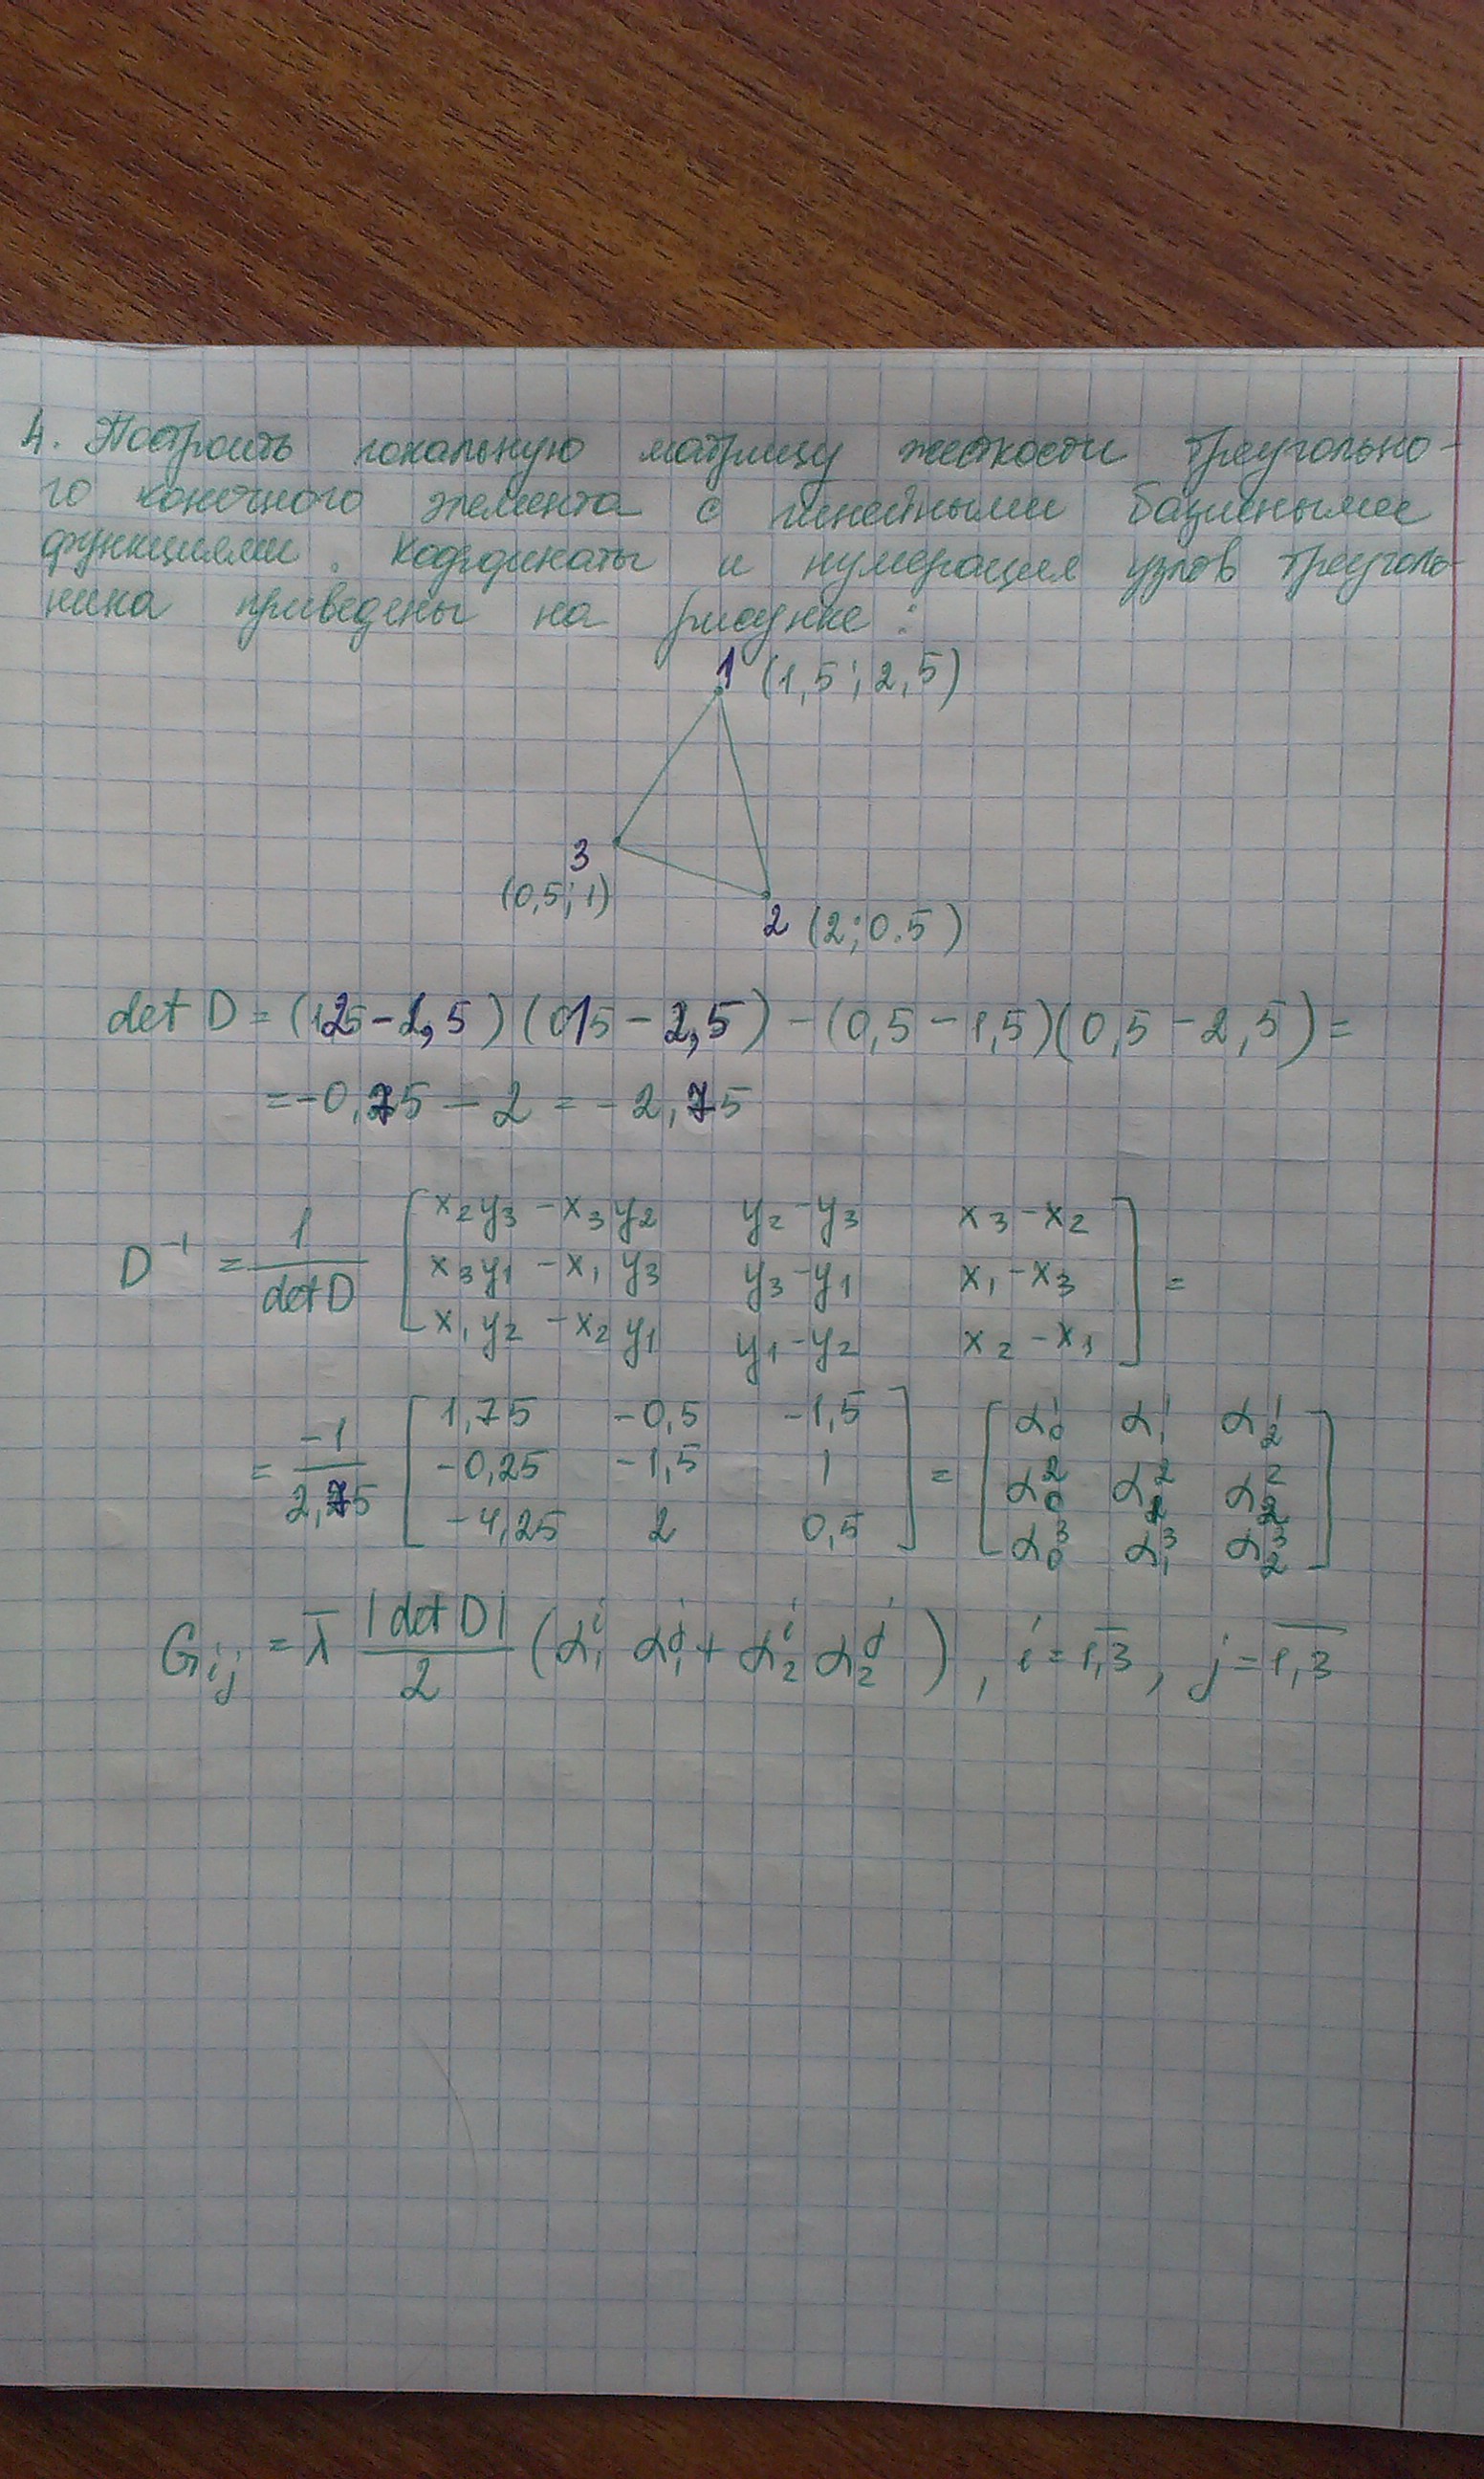 4. Построить локальную матрицу жесткости треугольно-
го конечного элемента с линейными базисными
функциями. Координаты и нумерация узлов треуголь-
ника приведены на рисунке:
1 (1,5; 2,5)
3
(0,5; 1)
2 (2; 0.5)
det D = (0,5 - 1,5)(0,5 - 2,5) =
= -0,75 - 2 = -2,75
D⁻¹ = 1/det D [x₂y₃ - x₃y₂ y₂ - y₃ x₃ - x₂
x₃y₁ - x₁y₃ y₃ - y₁ x₁ - x₃
x₁y₂ - x₂y₁ y₁ - y₂ x₂ - x₁] =
= -1/2,75 [1,75 -0,5 -1,5
-0,25 -1,5 1
-4,25 2 0,5] = [α₀¹ α₁¹ α₂¹
α₀² α₁² α₂²
α₀³ α₁³ α₂³]
Gᵢⱼ = λ̄ |det D|/2 (α₁ⁱ α₁ʲ + α₂ⁱ α₂ʲ), i = 1,3, j = 1,3